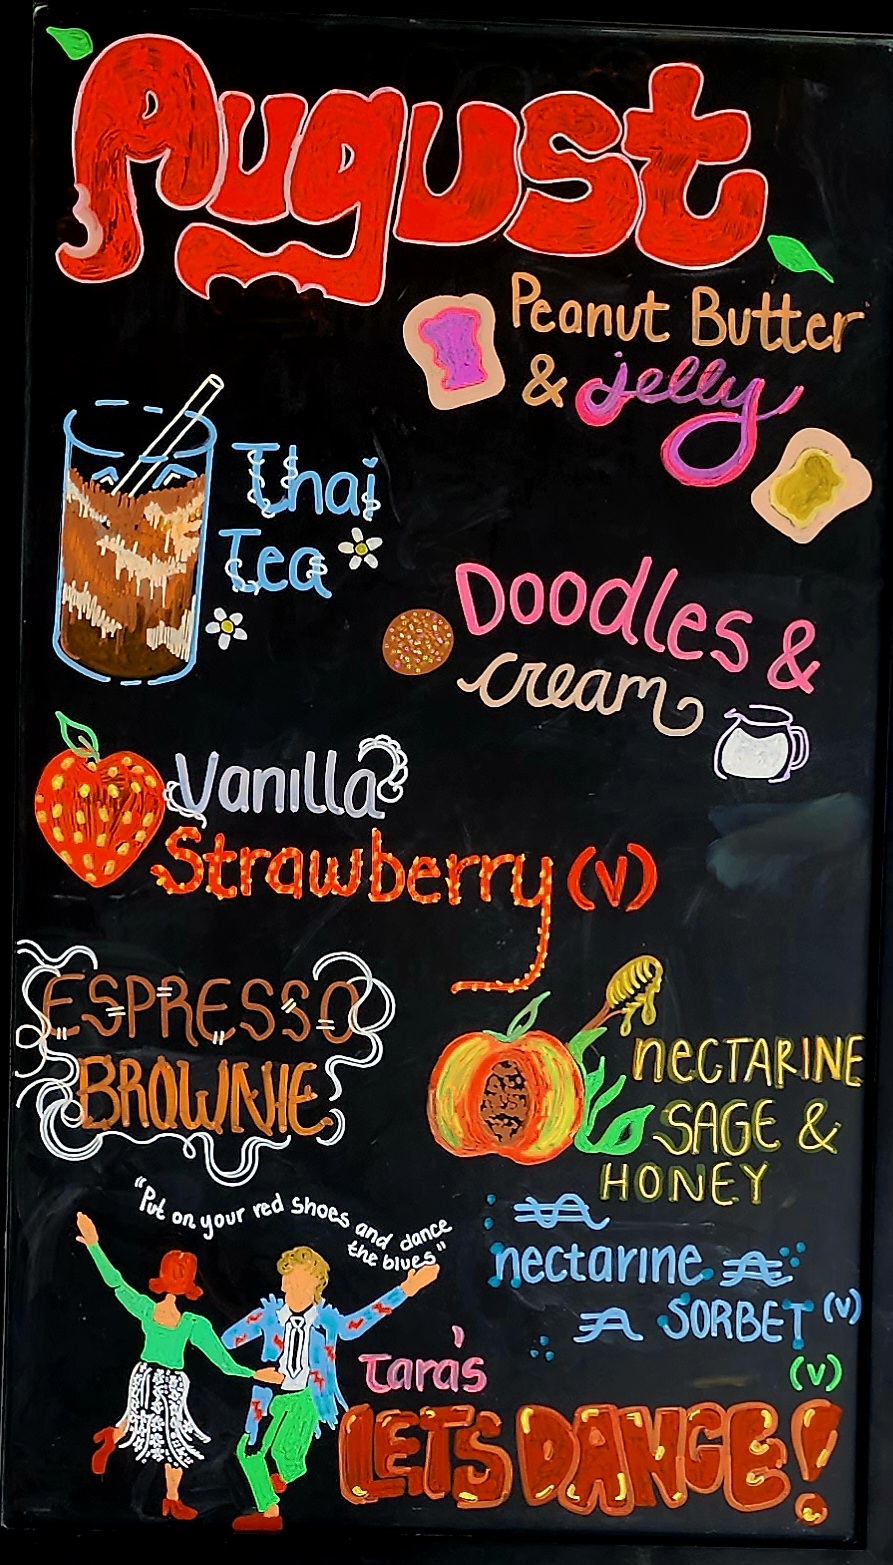 August
Peanut Butter
& Jelly
Thai
Tea
Doodles &
cream
Vanilla
Strawberry (v)
ESPRESSO
BROWNIE
NECTARINE
SAGE &
HONEY
"Put on your red shoes and dance
the blues"
nectarine
SORBET (v)
Tara's
(v)
LET'S DANCE!